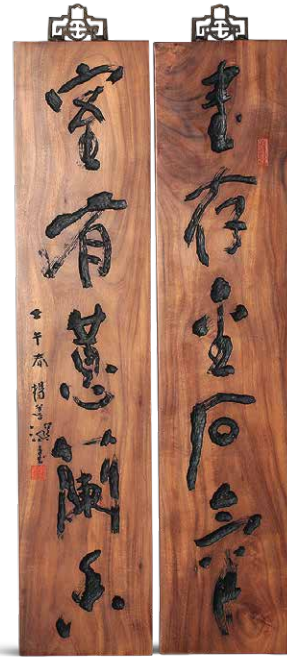 書存金石氣
室有蕙蘭香
壬午春 楊善深